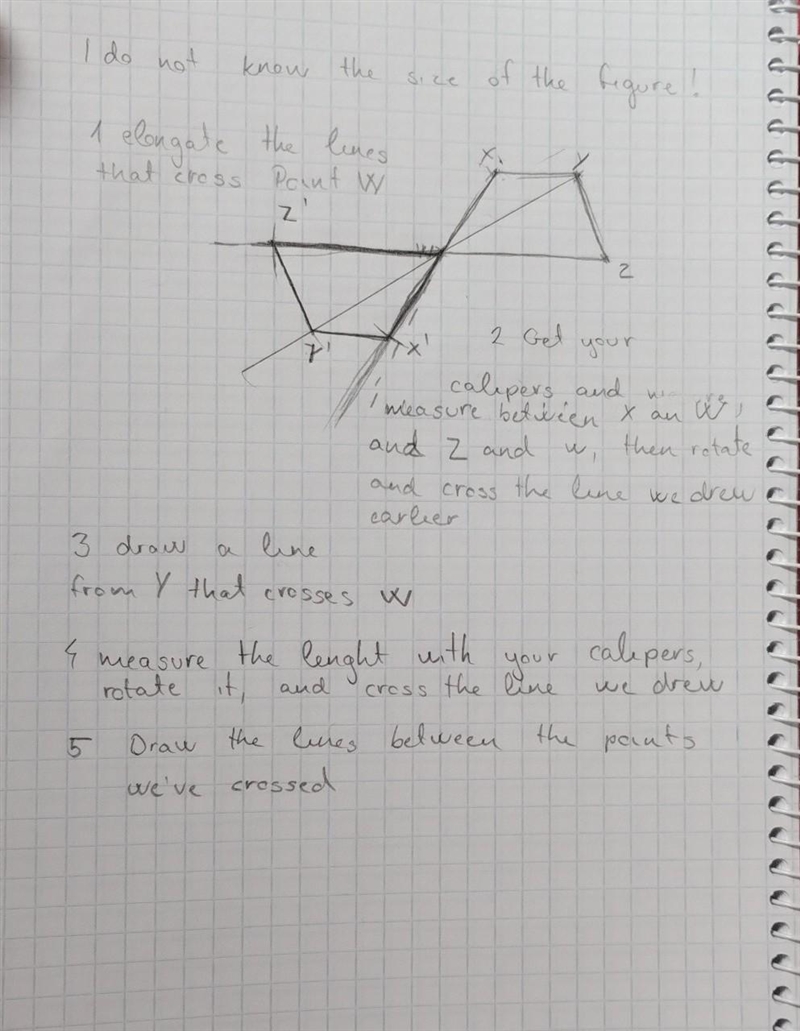 I do not know the size of the figure!
1 elongate the lines
that cross Point W
X
Y
Z'
W
Z
Y'
X'
2 Get your
calipers and
measure between X an W,
and Z and w, then rotate
and cross the line we drew
earlier
3 draw a line
from Y that crosses W
4 measure the lenght with your calipers,
rotate it, and cross the line we drew
5 Draw the lines between the points
we've crossed